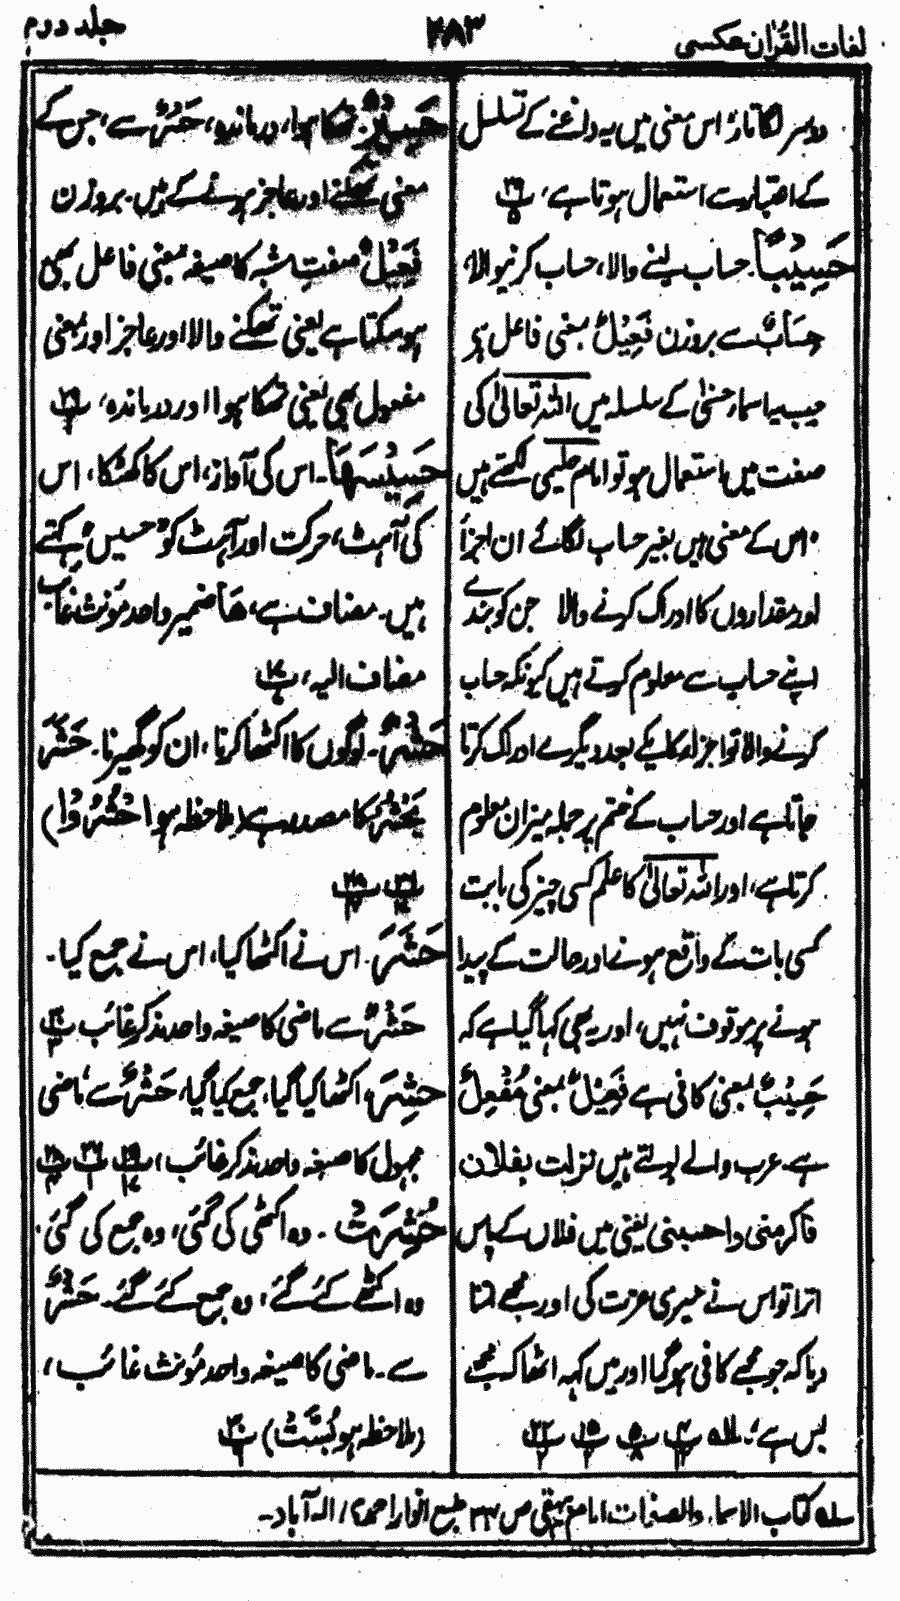 لغات القرآن عکسی
۲۸۳
جلد دوم
دوسر لگاتار، اس معنی میں یہ داغنے کے تسلسل
کے اعتبار سے استعمال ہوتا ہے،
حَسِیْبًا۔ حساب لینے والا، حساب کرنیوالا،
حِسَابٌ سے بروزن فَعِیْلٌ بمعنی فاعل ہی
حسیب اسماء حسنیٰ کے سلسلہ میں اللہ تعالیٰ کی
صفت میں استعمال ہو تو امام حلیمی لکھتے ہیں
اس کے معنی ہیں بغیر حساب لگائے ان اجزأ
اور مقداروں کا ادراک کرنے والا جن کو بندے
اپنے حساب سے معلوم کرتے ہیں کیونکہ حساب
کرنے والا تو اجزاء کا یکے بعد دیگرے ادراک کرتا
جاتا ہے اور حساب کے ختم پر جملہ میزان معلوم
کرتا ہے، اور اللہ تعالیٰ کا علم کسی چیز کی بابت
کسی بات کے واقع ہونے اور حالت کے پیدا
ہونے پر موقوف نہیں، اور یہ بھی کہا گیا ہے کہ
حَسِیْبٌ بمعنی کافی ہے فَعِیْلٌ بمعنی مُفْعِلٌ
ہے۔ عرب والے بولتے ہیں نزلت بفلان
فاکرمنی واحسبنی یعنی میں فلاں کے پاس
اترا تو اس نے میری عزت کی اور مجھے اتنا
دیا کہ جو مجھے کافی ہوگیا اور میں کہہ اٹھا کہ مجھے
بس ہے؛۔
حَسِیْرٌ۔ تھکا ہوا، درماندہ، حَسْرٌ سے، جس کے
معنی تھکنے اور عاجز ہونے کے ہیں۔ بروزن
فَعِیْلٌ صفت مشبہ کا صیغہ بمعنی فاعل بھی
ہوسکتا ہے یعنی تھکنے والا اور عاجز اور بمعنی
مفعول بھی یعنی تھکا ہوا اور درماندہ،
حَسِیْسَهَا۔ اس کی آواز، اس کا کھٹکا، اس
کی آہٹ، حرکت اور آہٹ کو حسیس کہتے
ہیں۔ مضاف ہے، هَا ضمیر واحد مؤنث غائب
مضاف الیہ،
حَشْرٌ۔ لوگوں کا اکٹھا کرنا، ان کو گھیرنا۔ حَشَرَ
یَحْشُرُ کا مصدر ہے (ملاحظہ ہو اُحْشُرُوْا)
حَشَرَ۔ اس نے اکٹھا کیا، اس نے جمع کیا۔
حَشْرٌ سے ماضی کا صیغہ واحد مذکر غائب
حُشِرَ، اکٹھا کیا گیا، جمع کیا گیا، حَشْرٌ سے، ماضی
مجہول کا صیغہ واحد مذکر غائب،
حُشِرَتْ۔ وہ اکٹھی کی گئی، وہ جمع کی گئی۔
وہ اکٹھے کئے گئے، وہ جمع کئے گئے۔ حَشْرٌ
سے۔ ماضی کا صیغہ واحد مؤنث غائب،
(ملاحظہ ہو بُسَّتْ)
لہ کتاب الاسماء والصفات امام بیہقی ص ۳۳ طبع انوار احمدی الہ آباد۔